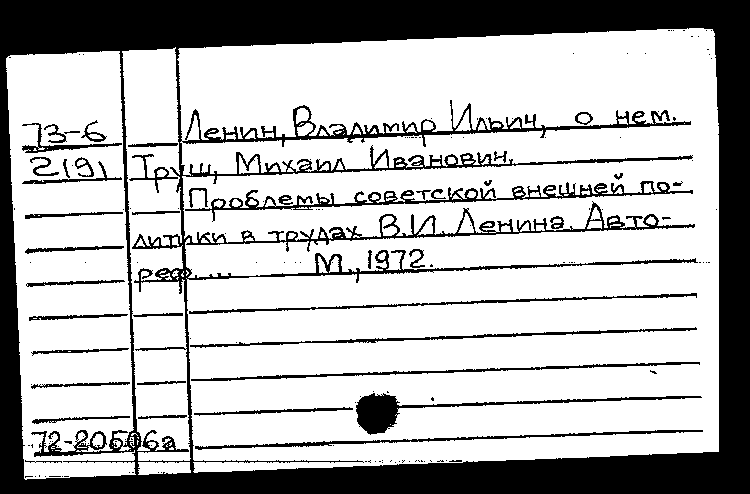 73-6 Ленин, Владимир Ильич, о нем.
2191 Труш, Михаил Иванович.
Проблемы советской внешней по-
литики в трудах В.И. Ленина. Авто-
реф. ... М., 1972.
72-20506а